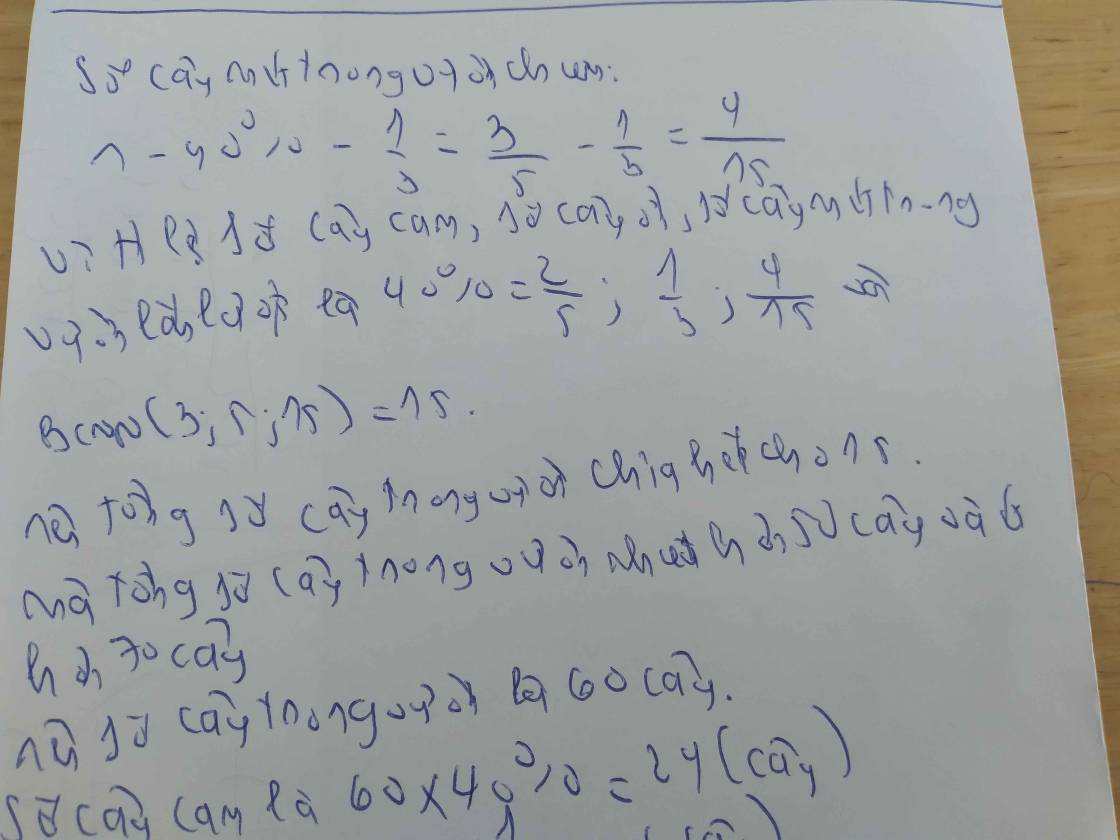 Số cây mít trong vườn chiếm:
1 - 40% - 1/3 = 3/5 - 1/3 = 4/15
Vì tỉ lệ số cây cam, số cây ổi, số cây mít trong
vườn lần lượt là 40% = 2/5 ; 1/3 ; 4/15 và
BCNN(3; 5; 15) = 15.
nên tổng số cây trong vườn chia hết cho 15.
mà tổng số cây trong vườn nhiều hơn 50 cây và ít
hơn 70 cây
nên số cây trong vườn là 60 cây.
Số cây cam là 60 x 40% = 24 (cây)